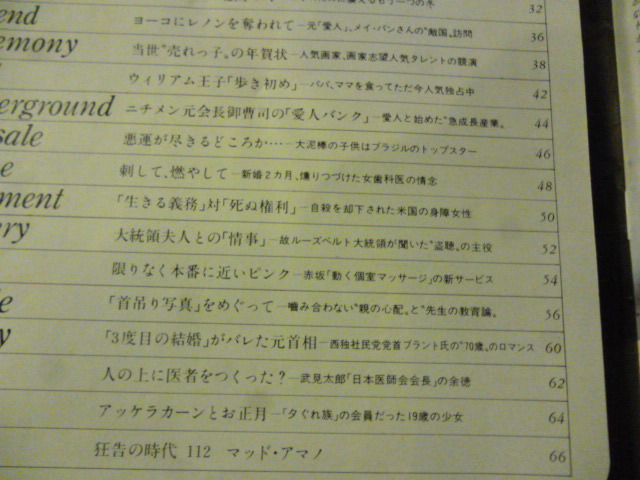 32
end ヨーコにレノンを奪われて—元「愛人」、メイ・パンさんの"敵国"訪問 36
emony 当世"売れっ子"の年賀状—人気画家、画家志望人気タレントの競演 38
ウィリアム王子「歩き初め」—パパ、ママを食ってただ今人気独占中 42
erground ニチメン元会長御曹司の「愛人バンク」—愛人と始めた"急成長産業" 44
sale 悪運が尽きるどころか……—大泥棒の子供はブラジルのトップスター 46
e 刺して、燃やして—新婚2カ月、燻りつづけた女歯科医の情念 48
ment 「生きる義務」対「死ぬ権利」—自殺を却下された米国の身障女性 50
ery 大統領夫人との「情事」—故ルーズベルト大統領が聞いた"盗聴"の主役 52
限りなく本番に近いピンク—赤坂「動く個室マッサージ」の新サービス 54
le 「首吊り写真」をめぐって—嚙み合わない"親の心配"と"先生の教育論" 56
y 「3度目の結婚」がバレた元首相—西独社民党党首ブラント氏の"70歳"のロマンス 60
人の上に医者をつくった?—武見太郎「日本医師会会長」の余徳 62
アッケラカーンとお正月—「夕ぐれ族」の会員だった19歳の少女 64
狂告の時代 112 マッド・アマノ 66